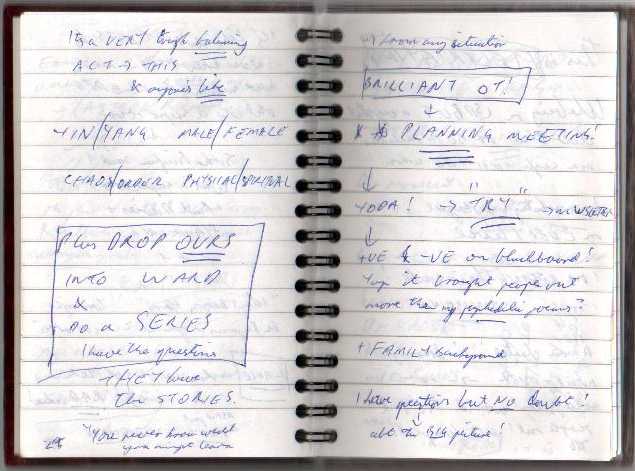 It's a VERY tough balancing
ACT → THIS
& anyone's life
YIN/YANG MALE/FEMALE
CHAOS/ORDER PHYSICAL/SPIRITUAL
Plus DROP OURS
INTO WARD
&
DO A SERIES
I have the questions
THEY have
The STORIES.
"You never know what
you might learn
from any situation
BRILLIANT OT!
↓
PLANNING MEETING!
↓
YODA! → "TRY" →
↓
+VE & -VE on blackboard!
Yup it brought people out
more than my psychedelic poems?
+ FAMILY background
I have questions but NO doubt!
↓
abt the BIG picture!